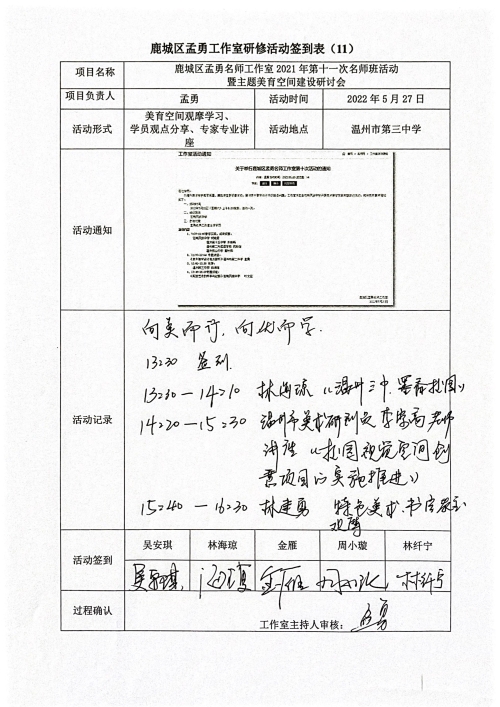 鹿城区孟勇工作室研修活动签到表（11）
项目名称
鹿城区孟勇名师工作室 2021 年第十一次名师班活动
暨主题美育空间建设研讨会
项目负责人
孟勇
活动时间
2022 年 5 月 27 日
活动形式
美育空间观摩学习、
学员观点分享、专家专业讲
座
活动地点
温州市第三中学
活动通知
工作室活动通知
关于举行鹿城区孟勇名师工作室第十次活动的通知
活动记录
向美而行，向
13:30 签到
13:30—14:10 林海琼《温州三中.
14:20—15:30 温州市美术研训员 老师
讲座《校园视觉空间创
意项目的实施推进》
15:40—16:30 林建勇 特色美术.书法教室
观摩
活动签到
吴安琪
林海琼
金雁
周小璇
林纤宁
吴安琪
海琼
金雁
周小璇
林纤宁
过程确认
工作室主持人审核：
孟勇